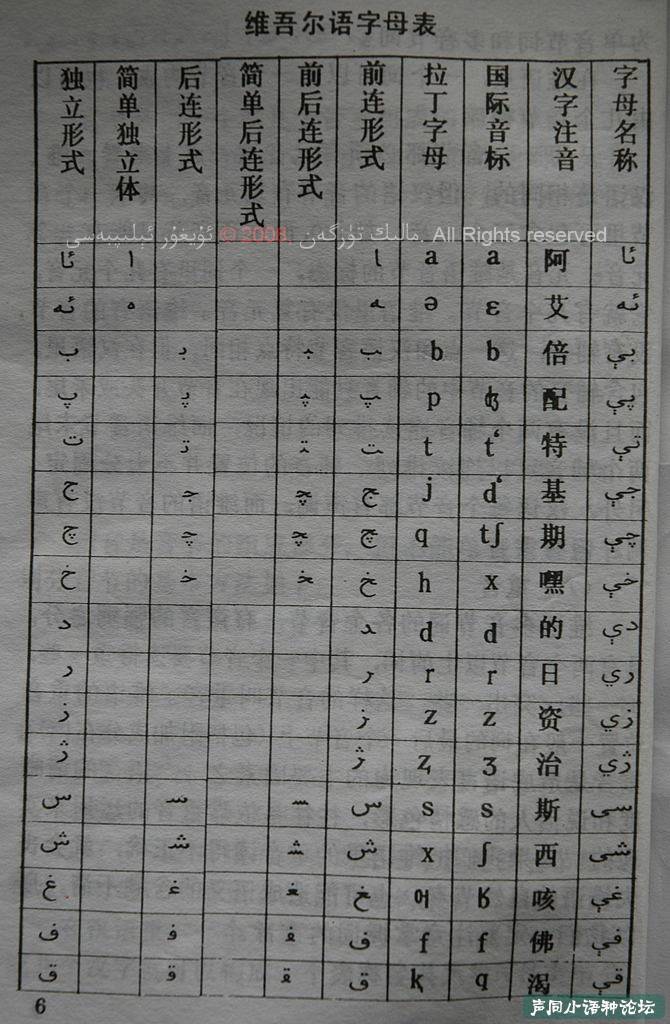 维吾尔语字母表
独立形式 简单独立体 后连形式 简单后连形式 前后连形式 前连形式 拉丁字母 国际音标 汉字注音 字母名称
ئۇيغۇر ئېلىپبەسى © 2008. مالىك تۈزگەن. All Rights reserved
ئا ا ـا a a 阿 ئا
ئە ە ـە ə ɛ 艾 ئە
ب بـ ـبـ ـب b b 倍 بې
پ پـ ـپـ ـپ p 配 پې
ت تـ ـتـ ـت t t‘ 特 تې
ج جـ ـج j d‘ 基 جې
چ چـ ـچـ ـچ q tʃ 期 چې
خ خـ ـخـ ـخ h x 嘿 خې
د ـد d d 的 دې
ر ـر r r 日 رې
ز ـز z z 资 زې
ژ ـژ ⱬ ʒ 治 ژې
س سـ ـسـ ـس s s 斯 سى
ش شـ ـشـ ـش x ʃ 西 شى
غ غـ ـغـ ʁ 咳 غې
ف فـ ـفـ ـف f f 佛 فې
ق قـ ـقـ ـق ⱪ q 渴 قې
6
声同小语种论坛